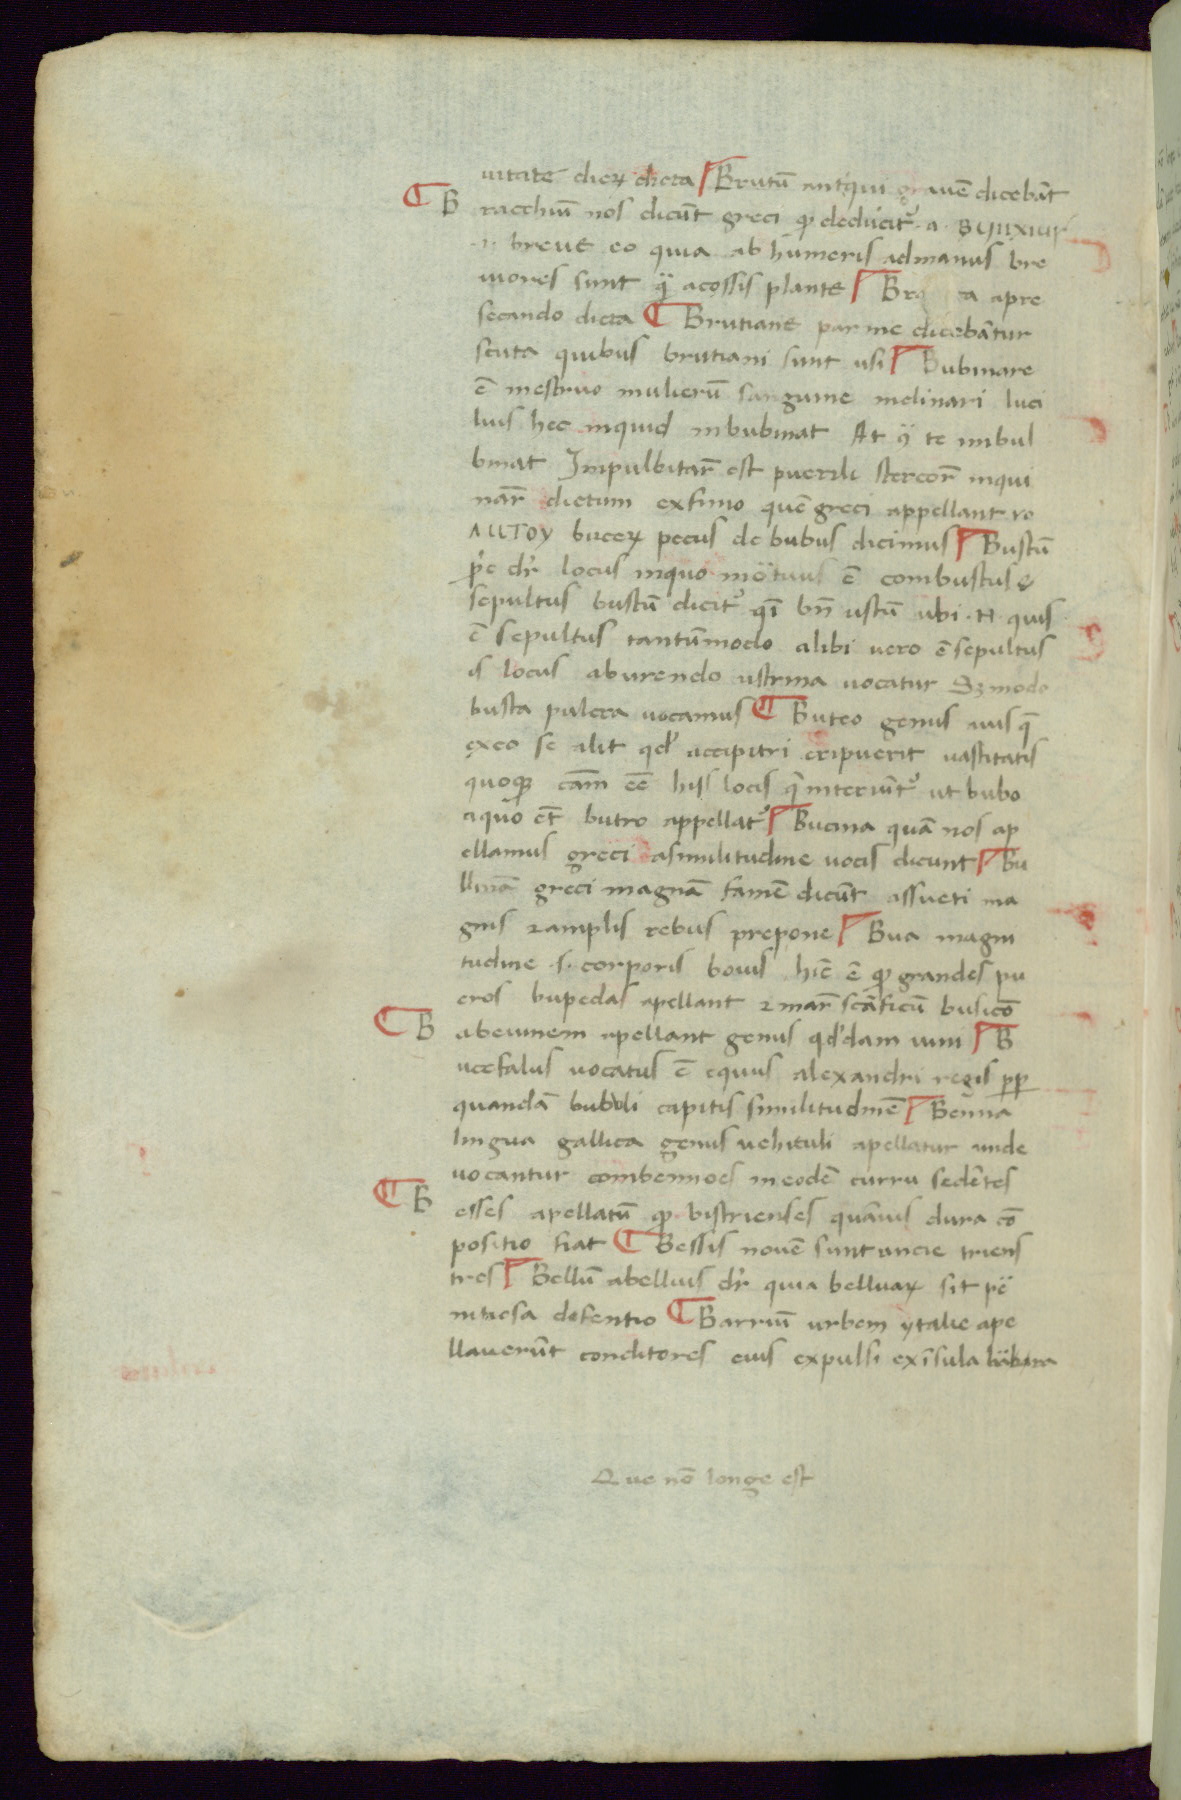 uitate dieꝝ dicta Brutū antiqui grauē dicebāt
B racchiū nos dicūt greci ꝙ deducit᷒ · a ·
·i· breue eo quia ab humeris ad manus bre
uiores sunt q̈ acossis plante Br a apre
secando dicta Brutiane parme dicebātur
scuta quibus brutiani sunt usi Bubinare
ē mestruo mulierū sanguine inclinari luci
lius hec inquid inbubinat At q̈ te imbul
binat Impulbitar̄ est puerili stercor̄ inqui
nar̄ dictum exfimo quē greci appellant ro
ΛUTOY buceꝝ pecus de bubus dicimus Bustū
p̄e dr̄ locus inquo mortuus ē combustus &
sepultus bustū dicit᷒ qī bn̄ ustū ubi ·n· quis
ē sepultus tantūmodo alibi uero ē sepultus
is locus aburendo ustrina uocatur Sꝫ modo
busta pulcra uocamus Buteo genus auis q̄
exeo se alit qd̄ accipitri eripuerit uastitatis
quoqꝫ cām eē his locis q̄ interiūt᷒ ut bubo
aquo ēt butro appellat᷒ Bucina quā nos ap
ellamus greci asimilitudine uocis dicunt Bu
llimā greci magnā famē dicūt assueti ma
gnis ⁊ amplis rebus prepone Bua magni
tudine ·s· corporis bouis hīc ē ꝙ grandes pu
eros bupedas apellant ⁊ mar̄ scāficū busicō
B abeumem apellant genus qd̄dam uini B
ucefalus uocatus ē equus alexandri regis pp̄
quandā bubuli capitis similitudinē Benna
lingua gallica genus uehituli apellatur unde
uocantur combennoes ineodē curru sedētes
B esses apellatū ꝙ bistrienses quāuis dura cō
positio fiat Bessis nouē sunt uncie triens
tres Bellū abelluis dr̄ quia belluaꝝ sit p̄
nitiosa defentio Barriū urbem ytalie ape
llauerūt conditores eius expulsi exīsula
Que nō longe est